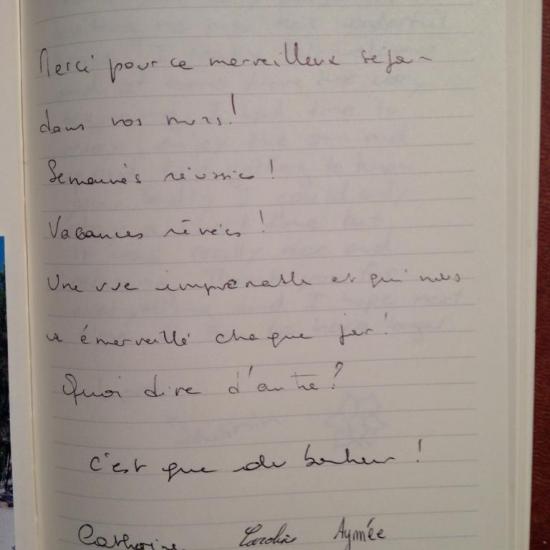 Merci pour ce merveilleux séjour
dans vos murs !
Semaines réussies !
Vacances rêvées !
Une vue imprenable et qui nous
a émerveillé chaque jour !
Quoi dire d'autre ?
c'est que du bonheur !
Catherine Caroline Aymée